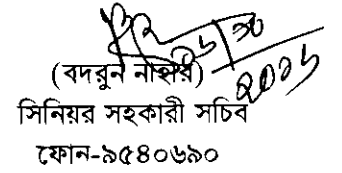 (বদরুন নাহার)
সিনিয়র সহকারী সচিব
ফোন-৯৫৪০৬৯০